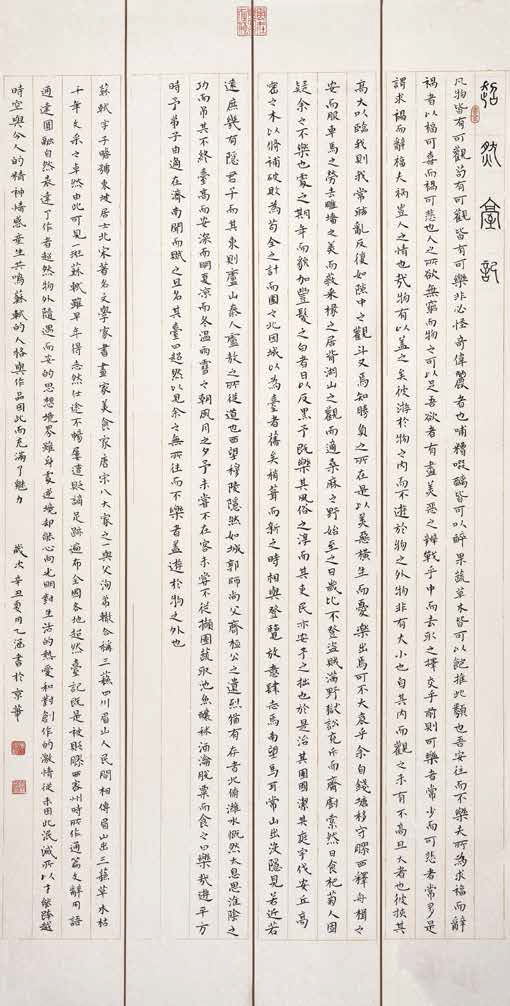 超然臺記
凡物皆有可觀苟有可觀皆有可樂非必怪奇偉麗者也哺糟啜醨皆可以醉果蔬草木皆可以飽推此類也吾安往而不樂夫所為求福而辭
禍者以福可喜而禍可悲也人之所欲無窮而物之可以足吾欲者有盡美惡之辨戰乎中而去取之擇交乎前則可樂者常少而可悲者常多是
謂求禍而辭福夫禍豈人之情也哉物有以蓋之矣彼游於物之內而不遊於物之外物非有大小也自其內而觀之未有不高且大者也彼挾其
高大以臨我則我常眩亂反復如隙中之觀斗又焉知勝負之所在是以美惡橫生而憂樂出焉可不大哀乎余自錢塘移守膠西釋舟楫之
安而服車馬之勞去雕墻之美而蔽采椽之居背湖山之觀而適桑麻之野始至之日歲比不登盜賊滿野獄訟充斥而齋廚索然日食杞菊人固
疑余之不樂也處之期年而貌加豐髮之白者日以反黑予既樂其風俗之淳而其吏民亦安予之拙也於是治其園圃潔其庭宇伐安丘高
密之木以修補破敗為苟全之計而園之北因城以為臺者舊矣稍葺而新之時相與登覽放意肆志焉南望馬耳常山出沒隱見若近若
遠庶幾有隱君子而其東則廬山秦人盧敖之所從遁也西望穆陵隱然如城郭師尚父齊桓公之遺烈猶有存者北俯濰水慨然大息思淮陰之
功而吊其不終臺高而安深而明夏涼而冬溫雨雪之朝風月之夕予未嘗不在客未嘗不從擷園蔬取池魚釀秫酒瀹脫粟而食之曰樂哉遊乎方
時予弟子由適在濟南聞而賦之且名其臺曰超然以見余之無所往而不樂者蓋遊於物之外也
蘇軾字子瞻號東坡居士北宋著名文學家書畫家美食家唐宋八大家之一與父洵弟轍合稱三蘇四川眉山人民間相傳眉山出三蘇草木枯
十年文采之卓然由此可見一班蘇軾雖早年得志然仕途不暢屢遭貶謫足跡遍布全國各地超然臺記既是被貶膠西密州時所作通篇文辭用語
通達圓融自然表達了作者超然物外隨遇而安的思想境界雖身處逆境却能心向光明對生活的熱愛和對創作的激情從未因此泯滅所以才能跨越
時空與今人的精神情感產生共鳴蘇軾的人格與作品因此而充滿了魅力
歲次辛丑夏月乙涵書於京華